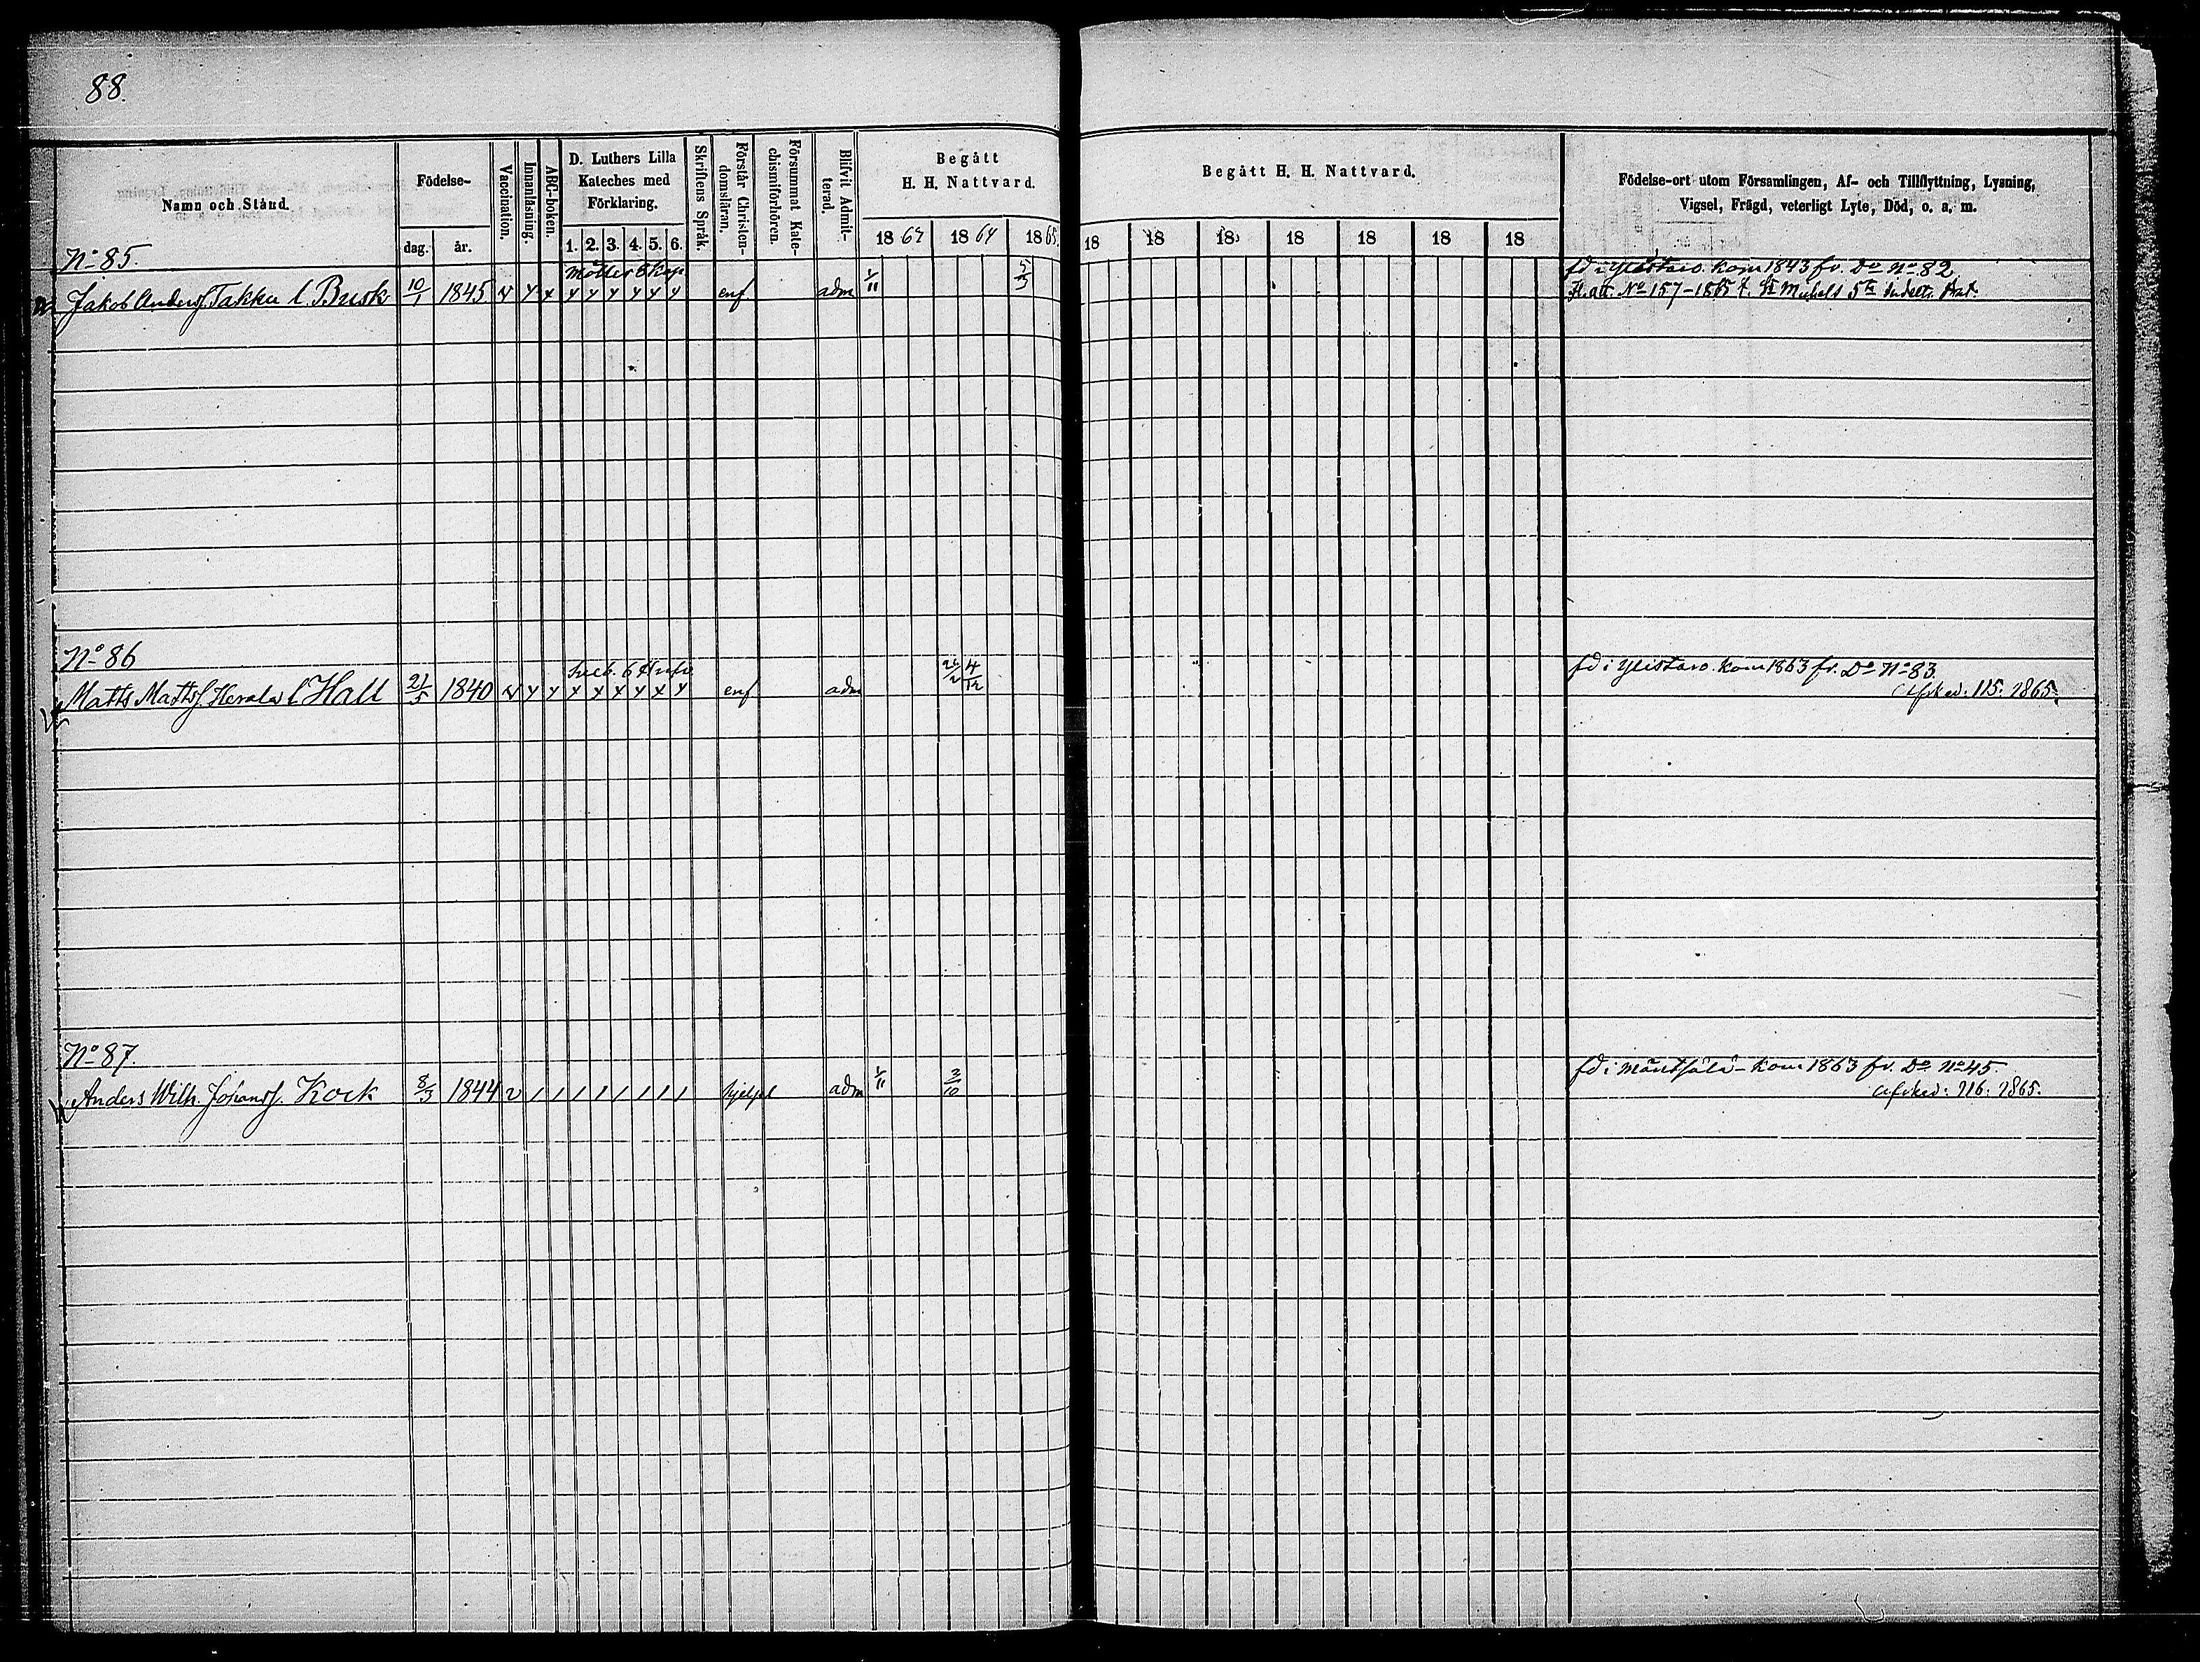 88.
Namn och Stånd.
Födelse-
dag. år.
Vaccination.
Innanläsning.
ABC-boken.
D. Luthers Lilla
Kateches med
Förklaring.
1. 2. 3. 4. 5. 6.
Skriftens Språk.
Förstår Christen-
domsläran.
Försummat Kate-
chismiförhören.
Blifvit Admit-
terad.
Begått
H. H. Nattvard.
1864 1865
Begått H. H. Nattvard.
18 18 18 18 18 18 18
Födelse-ort utom Församlingen, Af- och Tillflyttning, Lysning,
Vigsel, Frägd, veterligt Lyte, Död, o. a. m.
No 85.
Jakob Anderss. Takku l. Busk 10/1 1845 enf adm 1/11 5/3
fd i Ylistaro. kom 1843 fr. Do No 82
Fl. att. No 157-1865 t. St Michels 5te Indelt. Bat.
No 86
Matts Mattss. Kerala l Hall 21/5 1840 enf adm 4/12
fd i Ylistaro. kom 1863 fr. Do No 83.
Afsked: 115. 1865.
No 87.
Anders Wilh. Johanss. Kock 8/3 1844 v 1 1 1 1 1 1 1 1 hjelpl adm 1/11 3/10
fd i Mäntsälä - kom 1863 fr. Do No 45.
Afsked: 116: 1865.